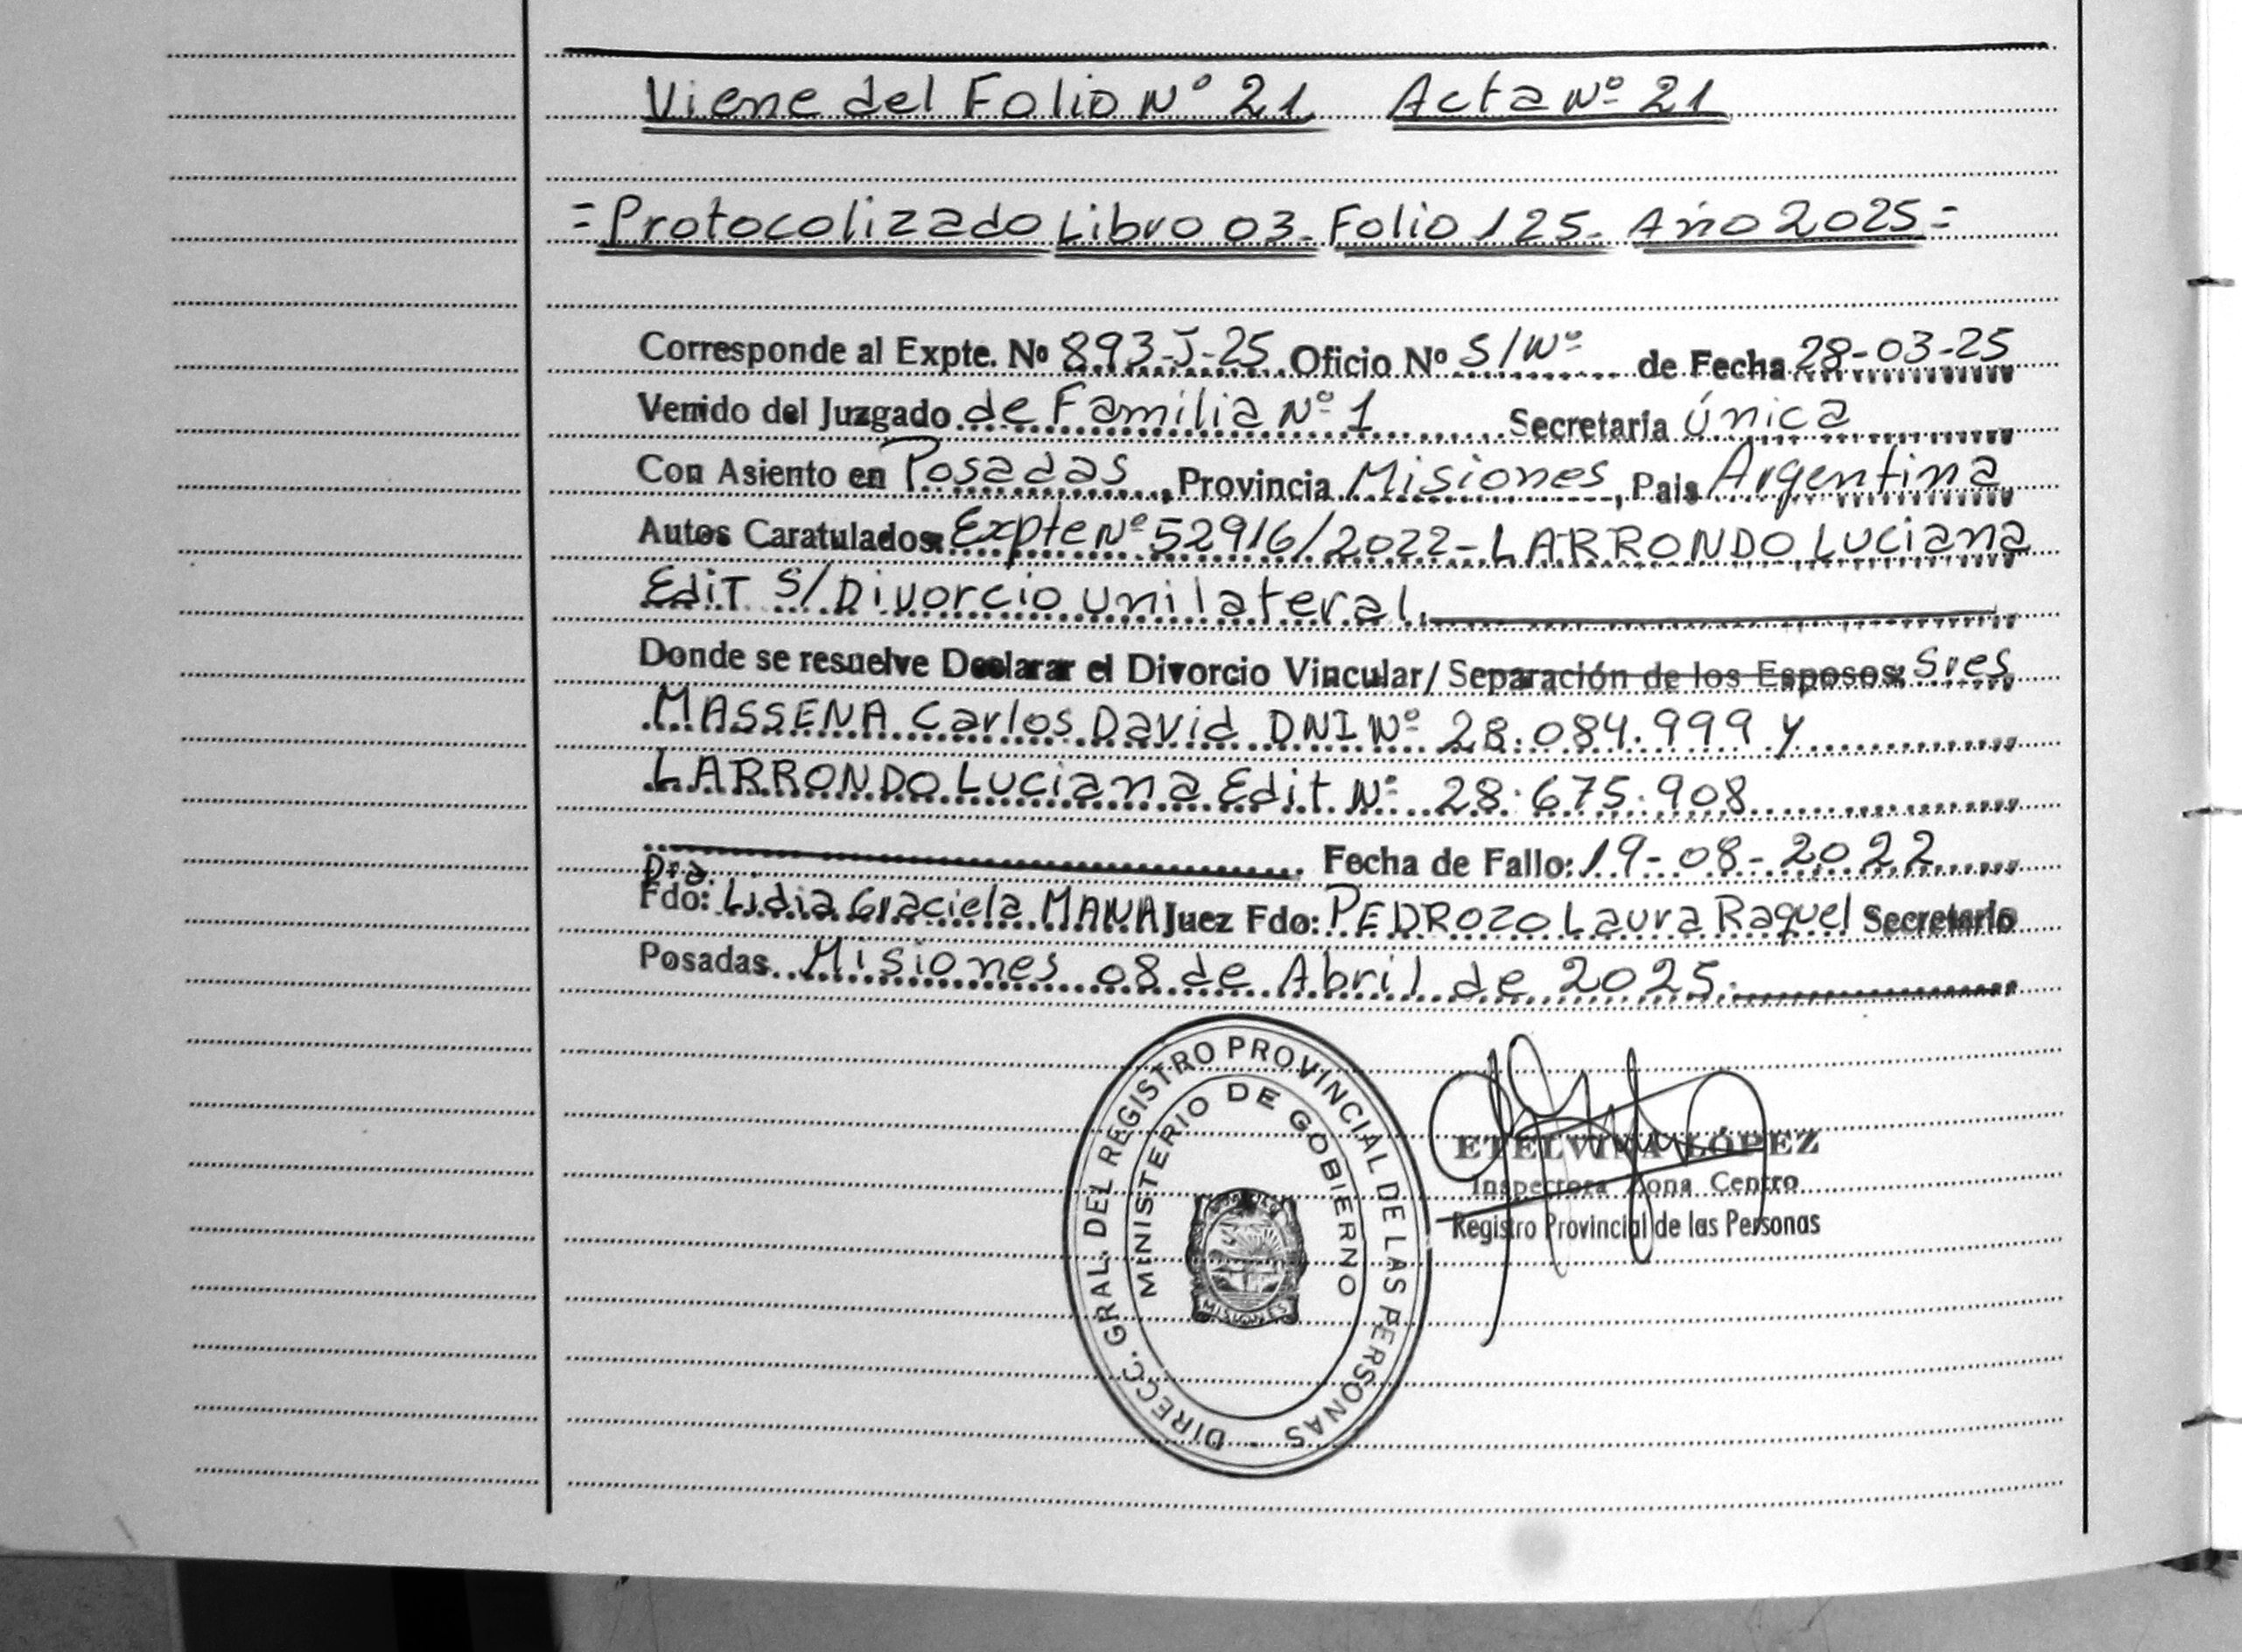 Viene del Folio Nº 21 Acta Nº 21
=Protocolizado Libro 03. Folio 125. Año 2025=
Corresponde al Expte. Nº 893-J-25 Oficio Nº S/Nº de Fecha 28-03-25
Venido del Juzgado de Familia Nº 1 Secretaria Única
Con Asiento en Posadas, Provincia Misiones, Pais Argentina
Autos Caratulados: Expte Nº 52916/2022 - LARRONDO Luciana
Edit S/Divorcio unilateral.
Donde se resuelve Declarar el Divorcio Vincular/ Separación de los Esposos: Sres
MASSENA Carlos David DNI Nº 28.084.999 y
LARRONDO Luciana Edit Nº 28.675.908
Fecha de Fallo: 19-08-2022
Dra.
Fdo: Lidia Graciela MANA Juez Fdo: PEDROZO Laura Raquel Secretario
Posadas Misiones 08 de Abril de 2025.
DIRECC. GRAL. DEL REGISTRO PROVINCIAL DE LAS PERSONAS
MINISTERIO DE GOBIERNO
MISIONES
ETELVINA LÓPEZ
Inspectora Zona Centro
Registro Provincial de las Personas